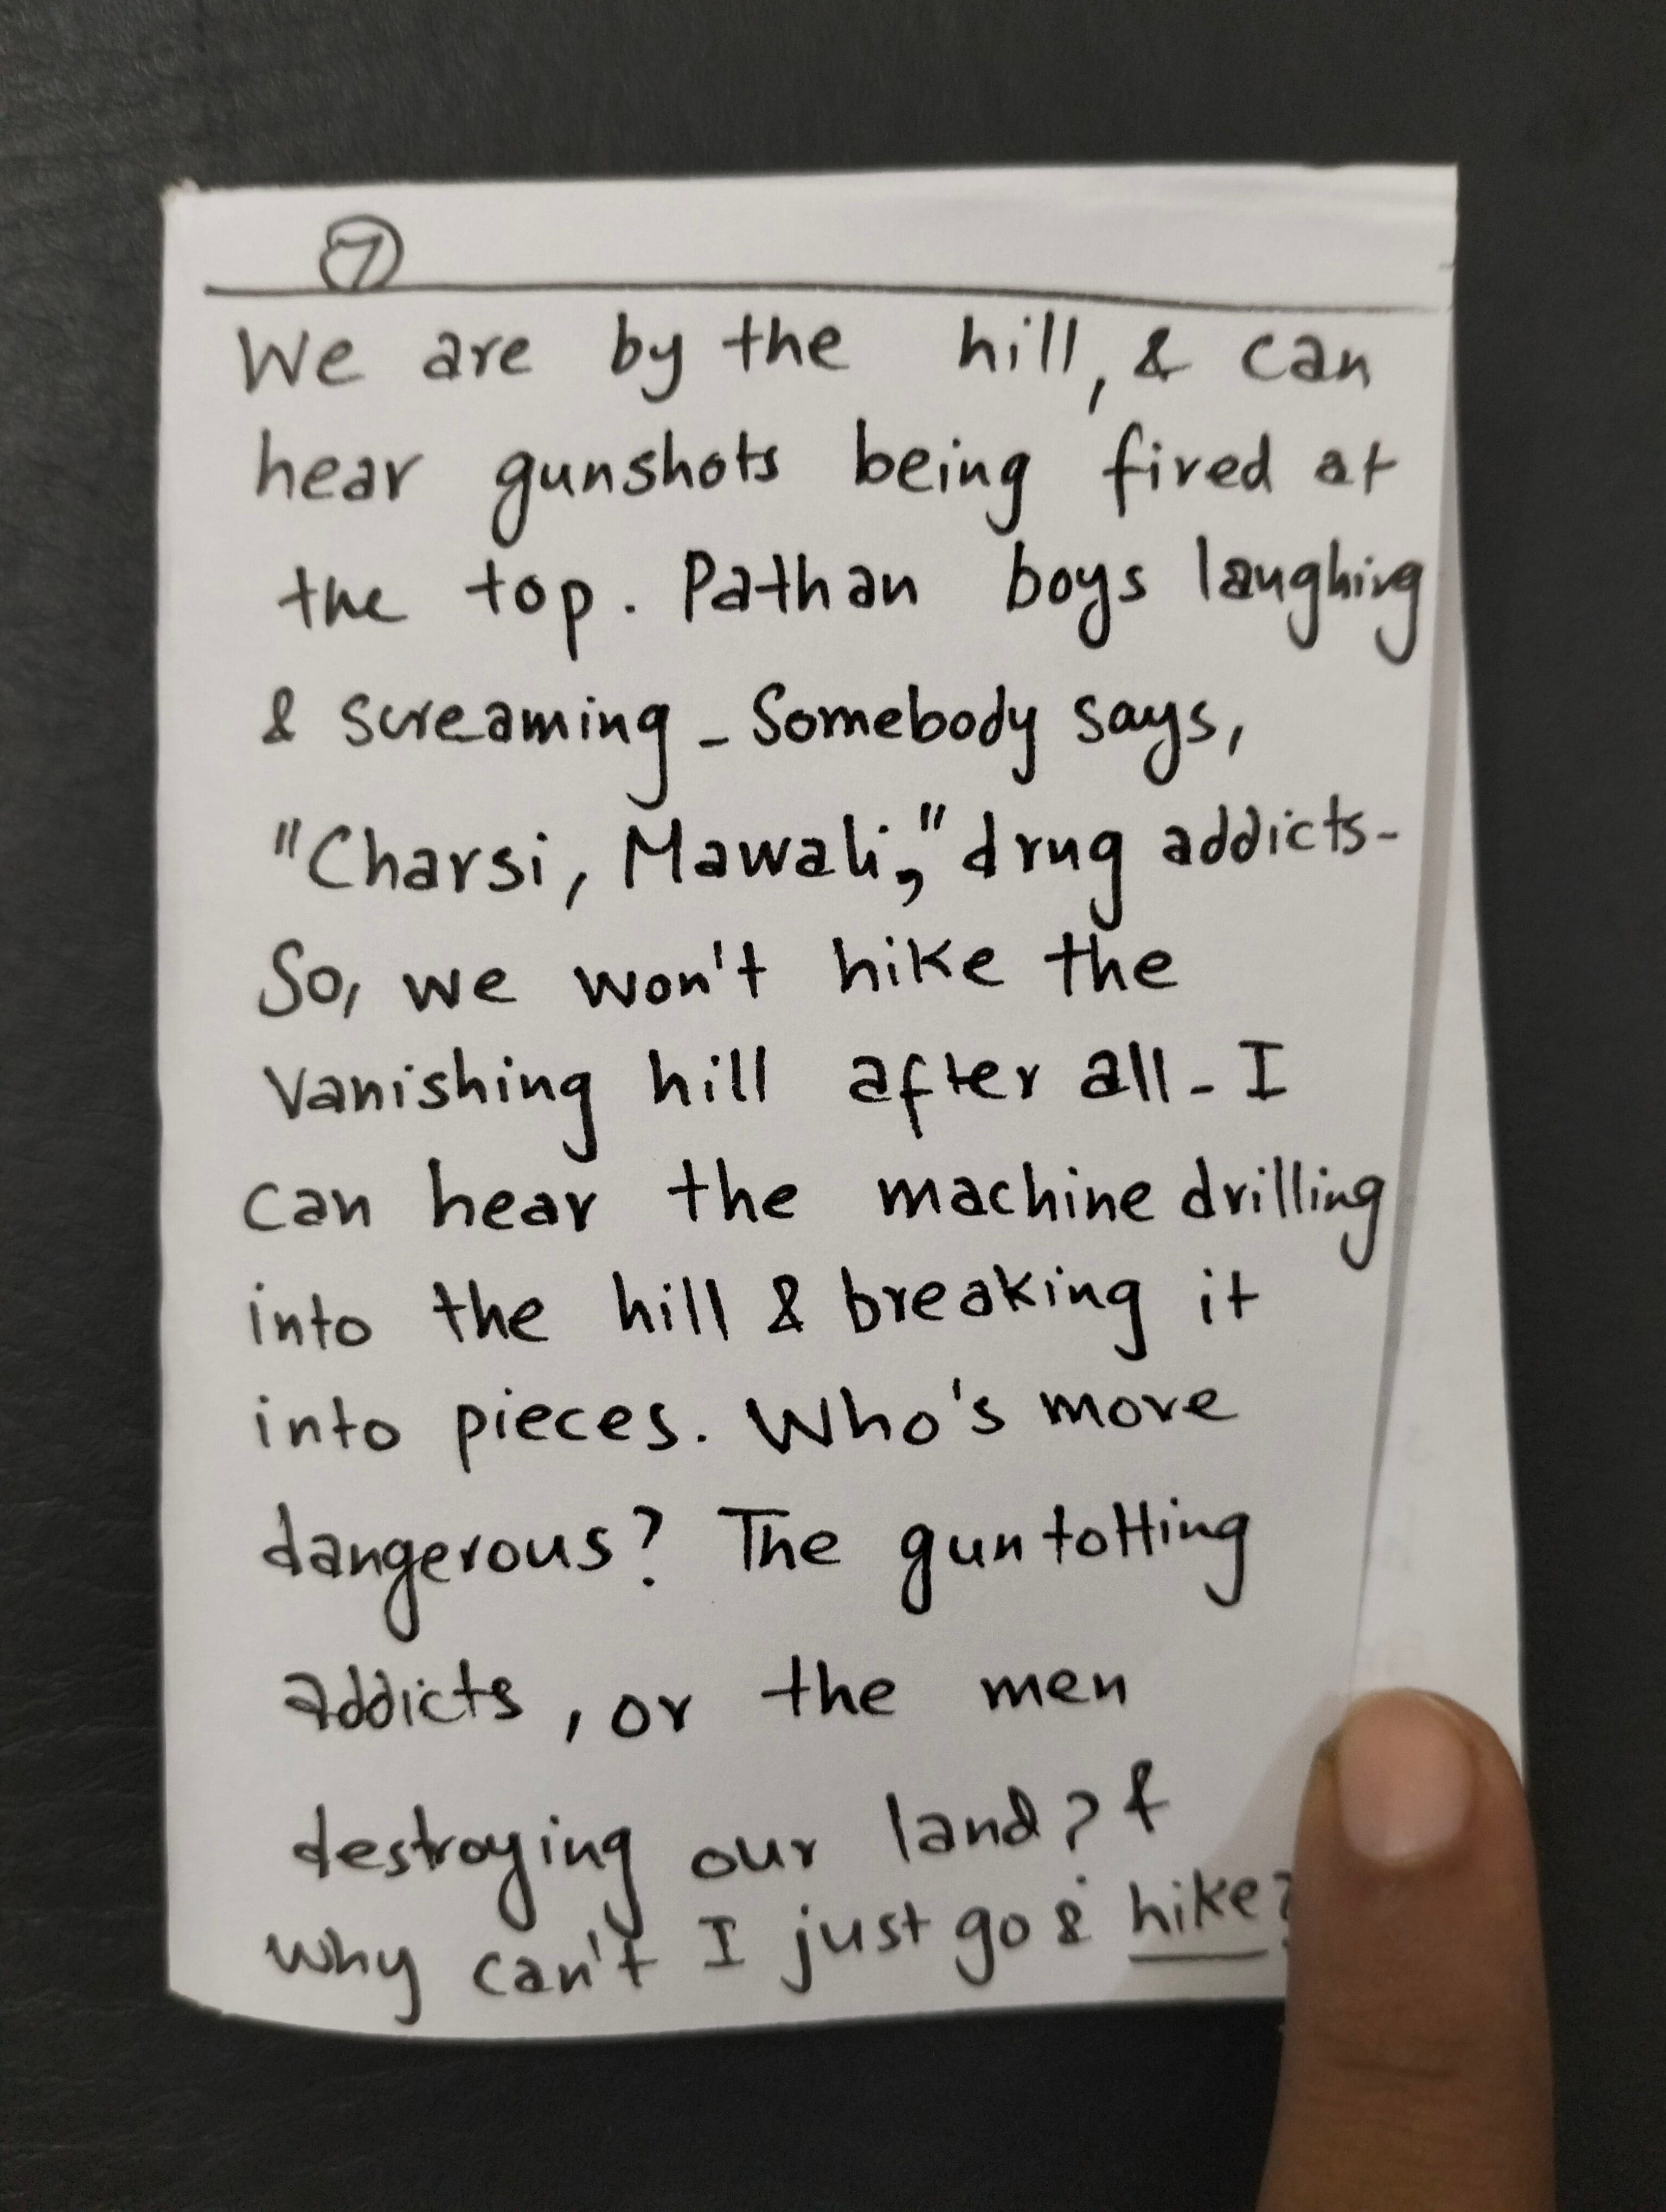 7
We are by the hill, & can
hear gunshots being fired at
the top. Pathan boys laughing
& screaming - Somebody says,
"Charsi, Mawali," drug addicts-
So, we won't hike the
Vanishing hill after all - I
can hear the machine drilling
into the hill & breaking it
into pieces. Who's more
dangerous? The gun totting
addicts, or the men
destroying our land? &
why can't I just go & hike?